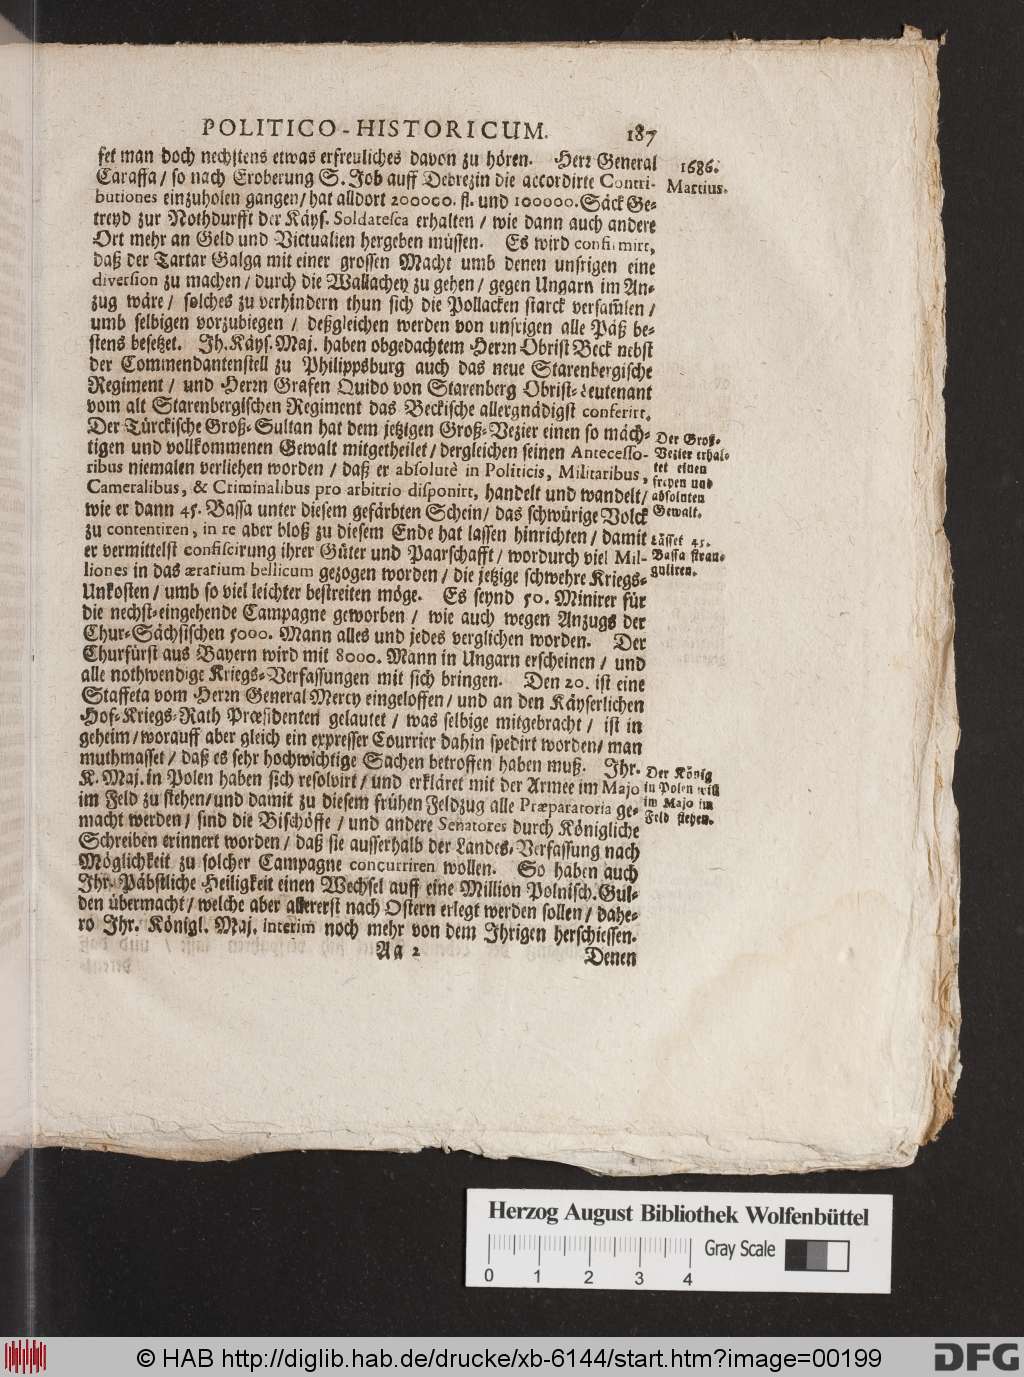 POLITICO-HISTORICUM. 187
fet man doch nechstens etwas erfreuliches davon zu hören. Herr General
Caraffa / so nach Eroberung S. Job auff Debrezin die accordirte Contri-
butiones einzuholen gangen / hat alldort 200000. fl. und 100000. Säck Ge-
treyd zur Nothdurfft der Käys. Soldatesca erhalten / wie dann auch andere
Ort mehr an Geld und Victualien hergeben müssen. Es wird confirmirt,
daß der Tartar Galga mit einer grossen Macht umb denen unsrigen eine
diversion zu machen / durch die Wallachey zu gehen / gegen Ungarn im An-
zug wäre / solches zu verhindern thun sich die Pollacken starck versam̃len /
umb selbigen vorzubiegen / deßgleichen werden von unsrigen alle Päß be-
stens besetzet. Ih. Käys. Maj. haben obgedachtem Herrn Obrist Beck nebst
der Commendantenstell zu Philippsburg auch das neue Starenbergische
Regiment / und Herrn Grafen Quido von Starenberg Obrist-Leutenant
vom alt Starenbergischen Regiment das Beckische allergnädigst conferirt.
Der Türckische Groß-Sultan hat dem jetzigen Groß-Vezier einen so mäch-
tigen und vollkommenen Gewalt mitgetheilet / dergleichen seinen Antecesso-
ribus niemalen verliehen worden / daß er absolutè in Politicis, Militaribus,
Cameralibus, & Criminalibus pro arbitrio disponirt, handelt und wandelt /
wie er dann 45. Bassa unter diesem gefärbten Schein / das schwürige Volck
zu contentiren, in re aber bloß zu diesem Ende hat lassen hinrichten / damit
er vermittelst confiscirung ihrer Güter und Paarschafft / wordurch viel Mil-
liones in das ærarium bellicum gezogen worden / die jetzige schwehre Kriegs-
Unkosten / umb so viel leichter bestreiten möge. Es seynd 50. Minirer für
die nechst-eingehende Campagne geworben / wie auch wegen Anzugs der
Chur-Sächsischen 5000. Mann alles und jedes verglichen worden. Der
Churfürst aus Bayern wird mit 8000. Mann in Ungarn erscheinen / und
alle nothwendige Kriegs-Verfassungen mit sich bringen. Den 20. ist eine
Staffeta vom Herrn General Mercy eingeloffen / und an den Käyserlichen
Hof-Kriegs-Rath Præsidenten gelautet / was selbige mitgebracht / ist in
geheim / worauff aber gleich ein expresser Courrier dahin spedirt worden / man
muthmasset / daß es sehr hochwichtige Sachen betroffen haben muß. Ihr.
K. Maj. in Polen haben sich resolvirt / und erkläret mit der Armee im Majo
im Feld zu stehen / und damit zu diesem frühen Feldzug alle Præparatoria ge-
macht werden / sind die Bischöffe / und andere Senatores durch Königliche
Schreiben erinnert worden / daß sie ausserhalb der Landes-Verfassung nach
Möglichkeit zu solcher Campagne concurriren wollen. So haben auch
Ihr. Päbstliche Heiligkeit einen Wechsel auff eine Million Polnisch. Gul-
den übermacht / welche aber allererst nach Ostern erlegt werden sollen / dahe-
ro Ihr. Königl. Maj. interim noch mehr von dem Ihrigen herschiessen.
Aa 2 Denen
1686.
Martius.
Der Groß-
Vezier erhal-
tet einen
freyen und
absoluten
Gewalt.
Lässet 45.
Bassa stran-
guliren.
Der König
in Polen will
im Majo im
Feld stehen.
Herzog August Bibliothek Wolfenbüttel
Gray Scale
0 1 2 3 4
© HAB http://diglib.hab.de/drucke/xb-6144/start.htm?image=00199
DFG